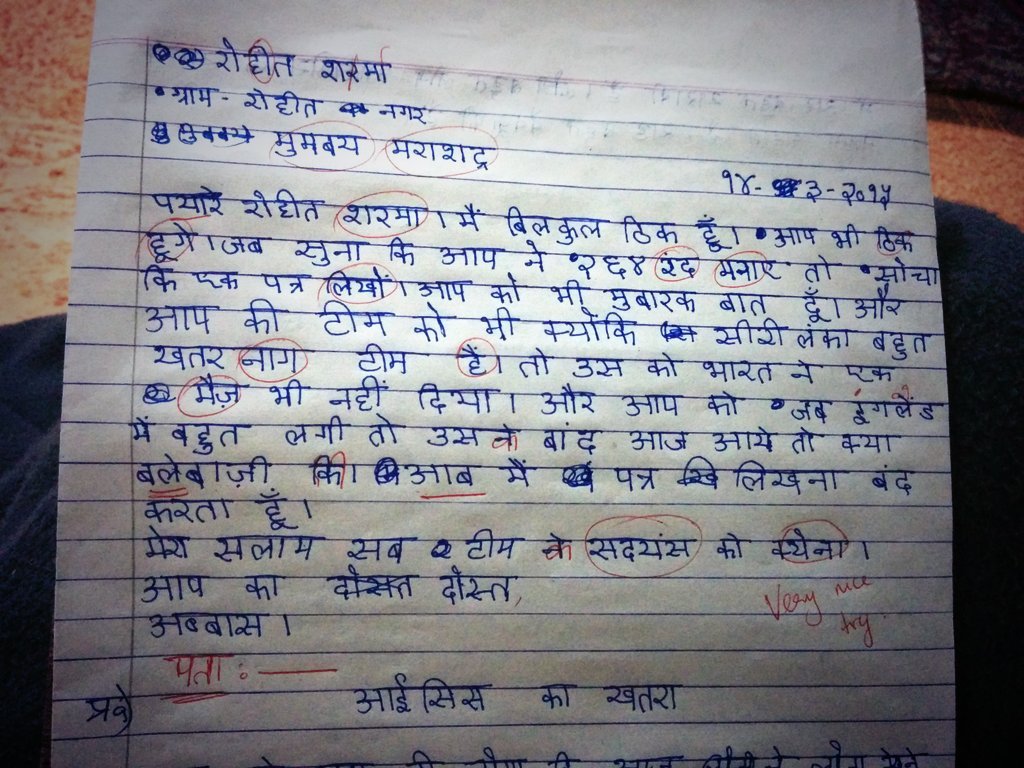 रोहीत शरर्मा
ग्राम - रोहीत नगर
मुमबय मराशट्र
१४- ३-२०१५
पयारे रोहीत शरमा। मैं बिलकुल ठिक हूँ। आप भी ठिक
हूगे। जब सुना कि आप ने २६४ रंद मनाए तो सोचा
कि एक पत्र लिखों। आप को भी मुबारक बात हूँ। और
आप की टीम को भी क्योंकि सीरी लंका बहुत
खतर नाग टीम है। तो उस को भारत ने एक
मैज़ भी नहीं दिया। और आप को जब इंगलेंड
में बहुत लगी तो उस के बांद आज आये तो क्या
बलेबाज़ी की। आब मैं पत्र लिखना बंद
करता हूँ।
मेरा सलाम सब टीम के सदयंस को क्येना।
आप का दोस्त,
अब्बास।
Very nice
try.
पता : —
प्र२) आईसिस का खतरा